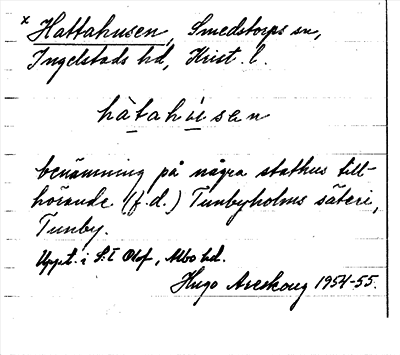 x Hattahusen, Smedstorps sn,
Ingelstads hd, Krist. l.
hàtahúsen
benämning på några stathus till-
hörande (f.d.) Tunbyholms säteri,
Tunby.
Uppt. i S:t Olof, Albo hd.
Hugo Areskoug 1954-55.